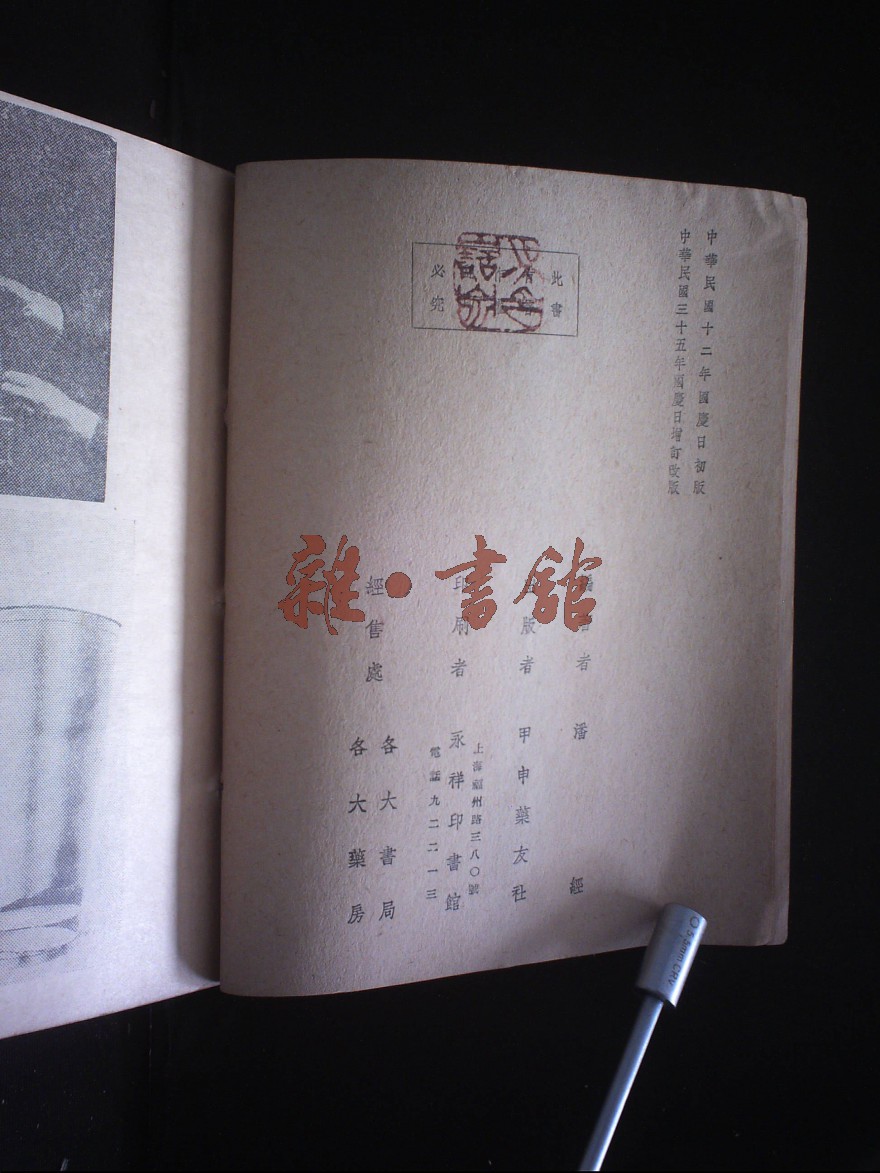 中華民國十二年國慶日初版
中華民國三十五年國慶日增訂改版
此書
必究
編著者 潘 經
出版者 甲申藥友社
印刷者 永祥印書館
上海福州路三八〇號
電話九二二一三
經售處 各大書局
各大藥房
雜·書館
5.5mm CRV